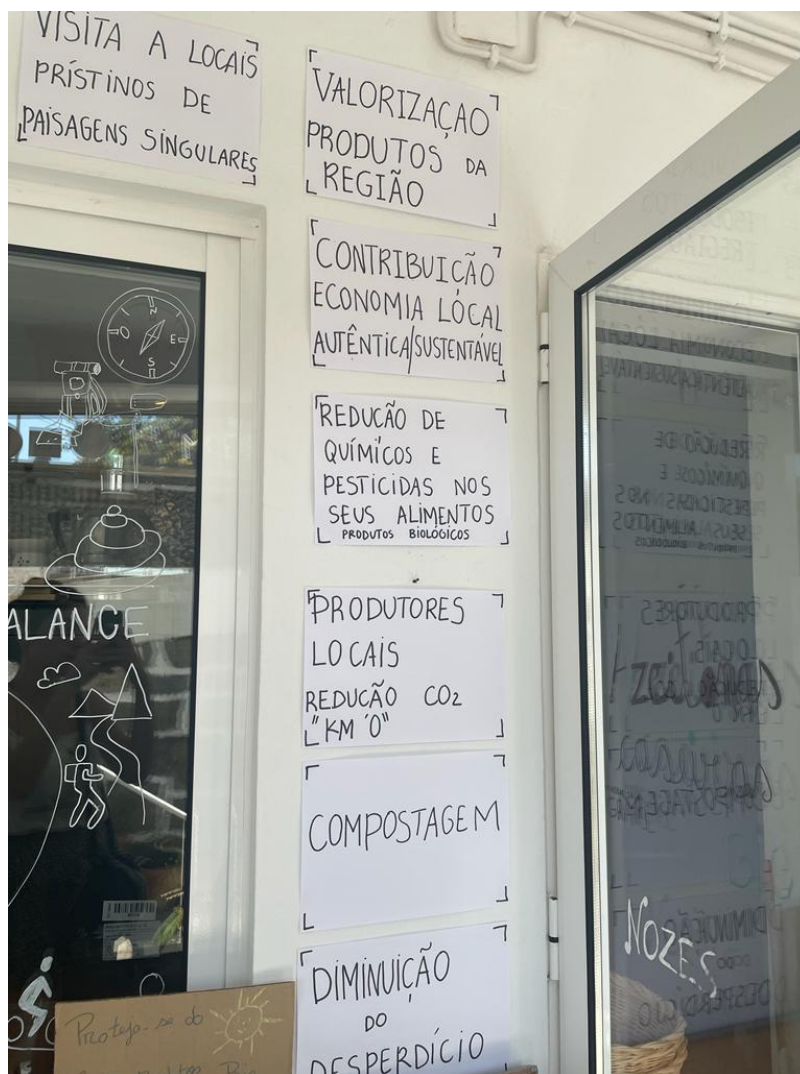 VISITA A LOCAIS
PRÍSTINOS DE
PAISAGENS SINGULARES
VALORIZAÇAO
PRODUTOS DA
REGIÃO
CONTRIBUIÇÃO
ECONOMIA LOCAL
AUTÊNTICA/SUSTENTÁVEL
REDUCÃO DE
QUÍMICOS E
PESTICIDAS NOS
SEUS ALIMENTOS
PRODUTOS BIOLÓGICOS
PRODUTORES
LOCAIS
REDUCÃO CO2
"KM '0"
COMPOSTAGEM
DIMINUIÇÃO
DO
DESPERDÍCIO
N
O E
S
ALANCE
Proteja-se do
NOZES